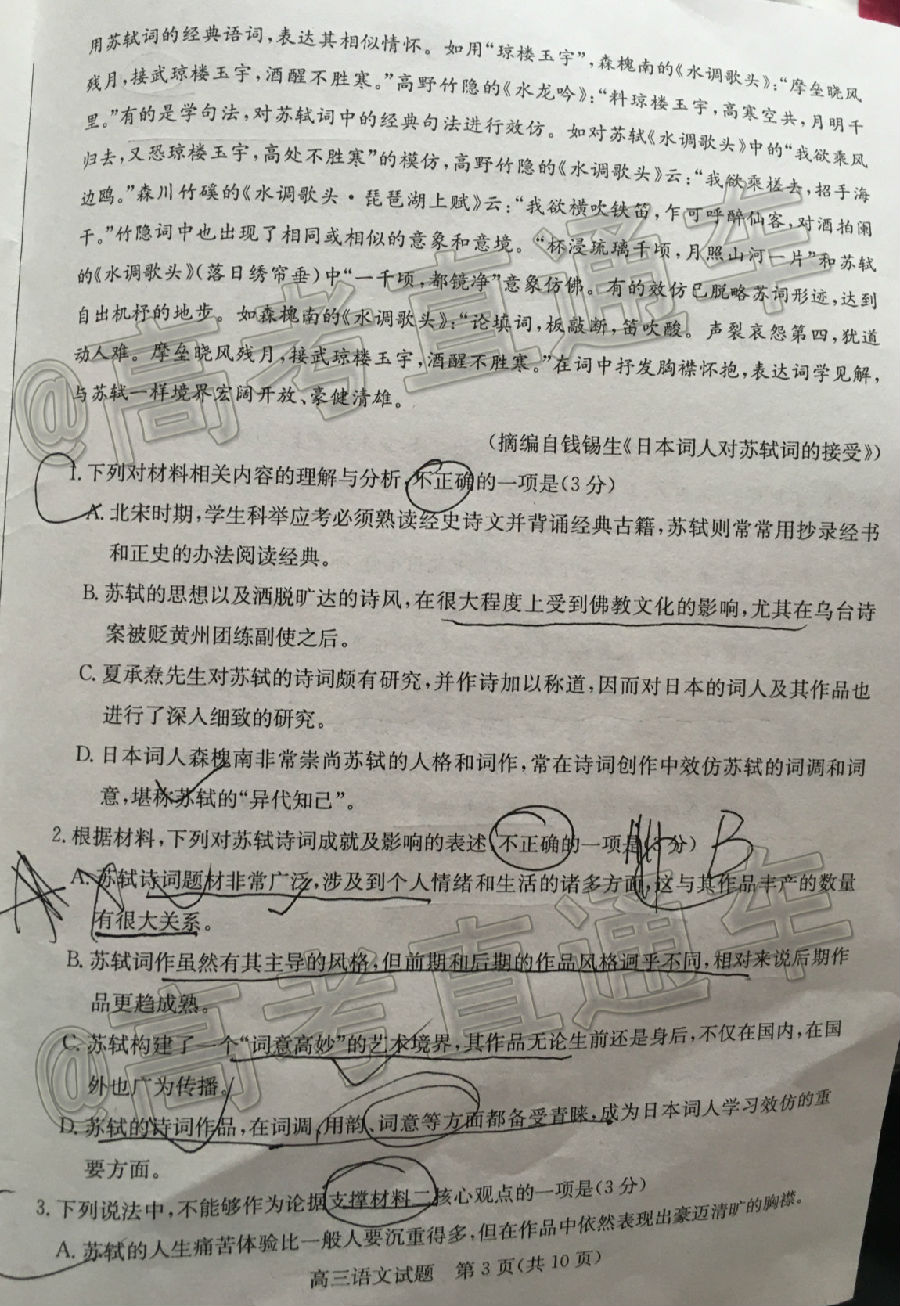 用苏轼词的经典语词，表达其相似情怀。如用“琼楼玉宇”，森槐南的《水调歌头》：“摩垒晓风
残月，接武琼楼玉宇，酒醒不胜寒。”高野竹隐的《水龙吟》：“料琼楼玉宇，高寒空共，月明千
里。”有的是学句法，对苏轼词中的经典句法进行效仿。如对苏轼《水调歌头》中的“我欲乘风
归去，又恐琼楼玉宇，高处不胜寒”的模仿，高野竹隐的《水调歌头》云：“我欲乘槎去，招手海
边鸥。”森川竹磎的《水调歌头·琵琶湖上赋》云：“我欲横吹铁笛，乍可呼醉仙客，对酒拍阑
干。”竹隐词中也出现了相同或相似的意象和意境。“杯浸琉璃千顷，月照山河一片”和苏轼
的《水调歌头》（落日绣帘垂）中“一千顷，都镜净”意象仿佛。有的效仿已脱略苏词形迹，达到
自出机杼的地步。如森槐南的《水调歌头》：“论填词，板敲断，笛吹酸。声裂哀怨第四，犹道
动人难。摩垒晓风残月，接武琼楼玉宇，酒醒不胜寒。”在词中抒发胸襟怀抱，表达词学见解，
与苏轼一样境界宏阔开放、豪健清雄。
（摘编自钱锡生《日本词人对苏轼词的接受》）
1.下列对材料相关内容的理解与分析，不正确的一项是（3分）
A.北宋时期，学生科举应考必须熟读经史诗文并背诵经典古籍，苏轼则常常用抄录经书
和正史的办法阅读经典。
B.苏轼的思想以及洒脱旷达的诗风，在很大程度上受到佛教文化的影响，尤其在乌台诗
案被贬黄州团练副使之后。
C.夏承焘先生对苏轼的诗词颇有研究，并作诗加以称道，因而对日本的词人及其作品也
进行了深入细致的研究。
D.日本词人森槐南非常崇尚苏轼的人格和词作，常在诗词创作中效仿苏轼的词调和词
意，堪称苏轼的“异代知己”。
2.根据材料，下列对苏轼诗词成就及影响的表述，不正确的一项是（3分） B
A.苏轼诗词题材非常广泛，涉及到个人情绪和生活的诸多方面，这与其作品丰产的数量
有很大关系。
B.苏轼词作虽然有其主导的风格，但前期和后期的作品风格迥乎不同，相对来说后期作
品更趋成熟。
C.苏轼构建了一个“词意高妙”的艺术境界，其作品无论生前还是身后，不仅在国内，在国
外也广为传播。
D.苏轼的诗词作品，在词调、用韵、词意等方面都备受青睐，成为日本词人学习效仿的重
要方面。
3.下列说法中，不能够作为论据支撑材料二核心观点的一项是（3分）
A.苏轼的人生痛苦体验比一般人要沉重得多，但在作品中依然表现出豪迈清旷的胸襟。
高三语文试题 第3页（共10页）
@高考直通车
@高考直通车